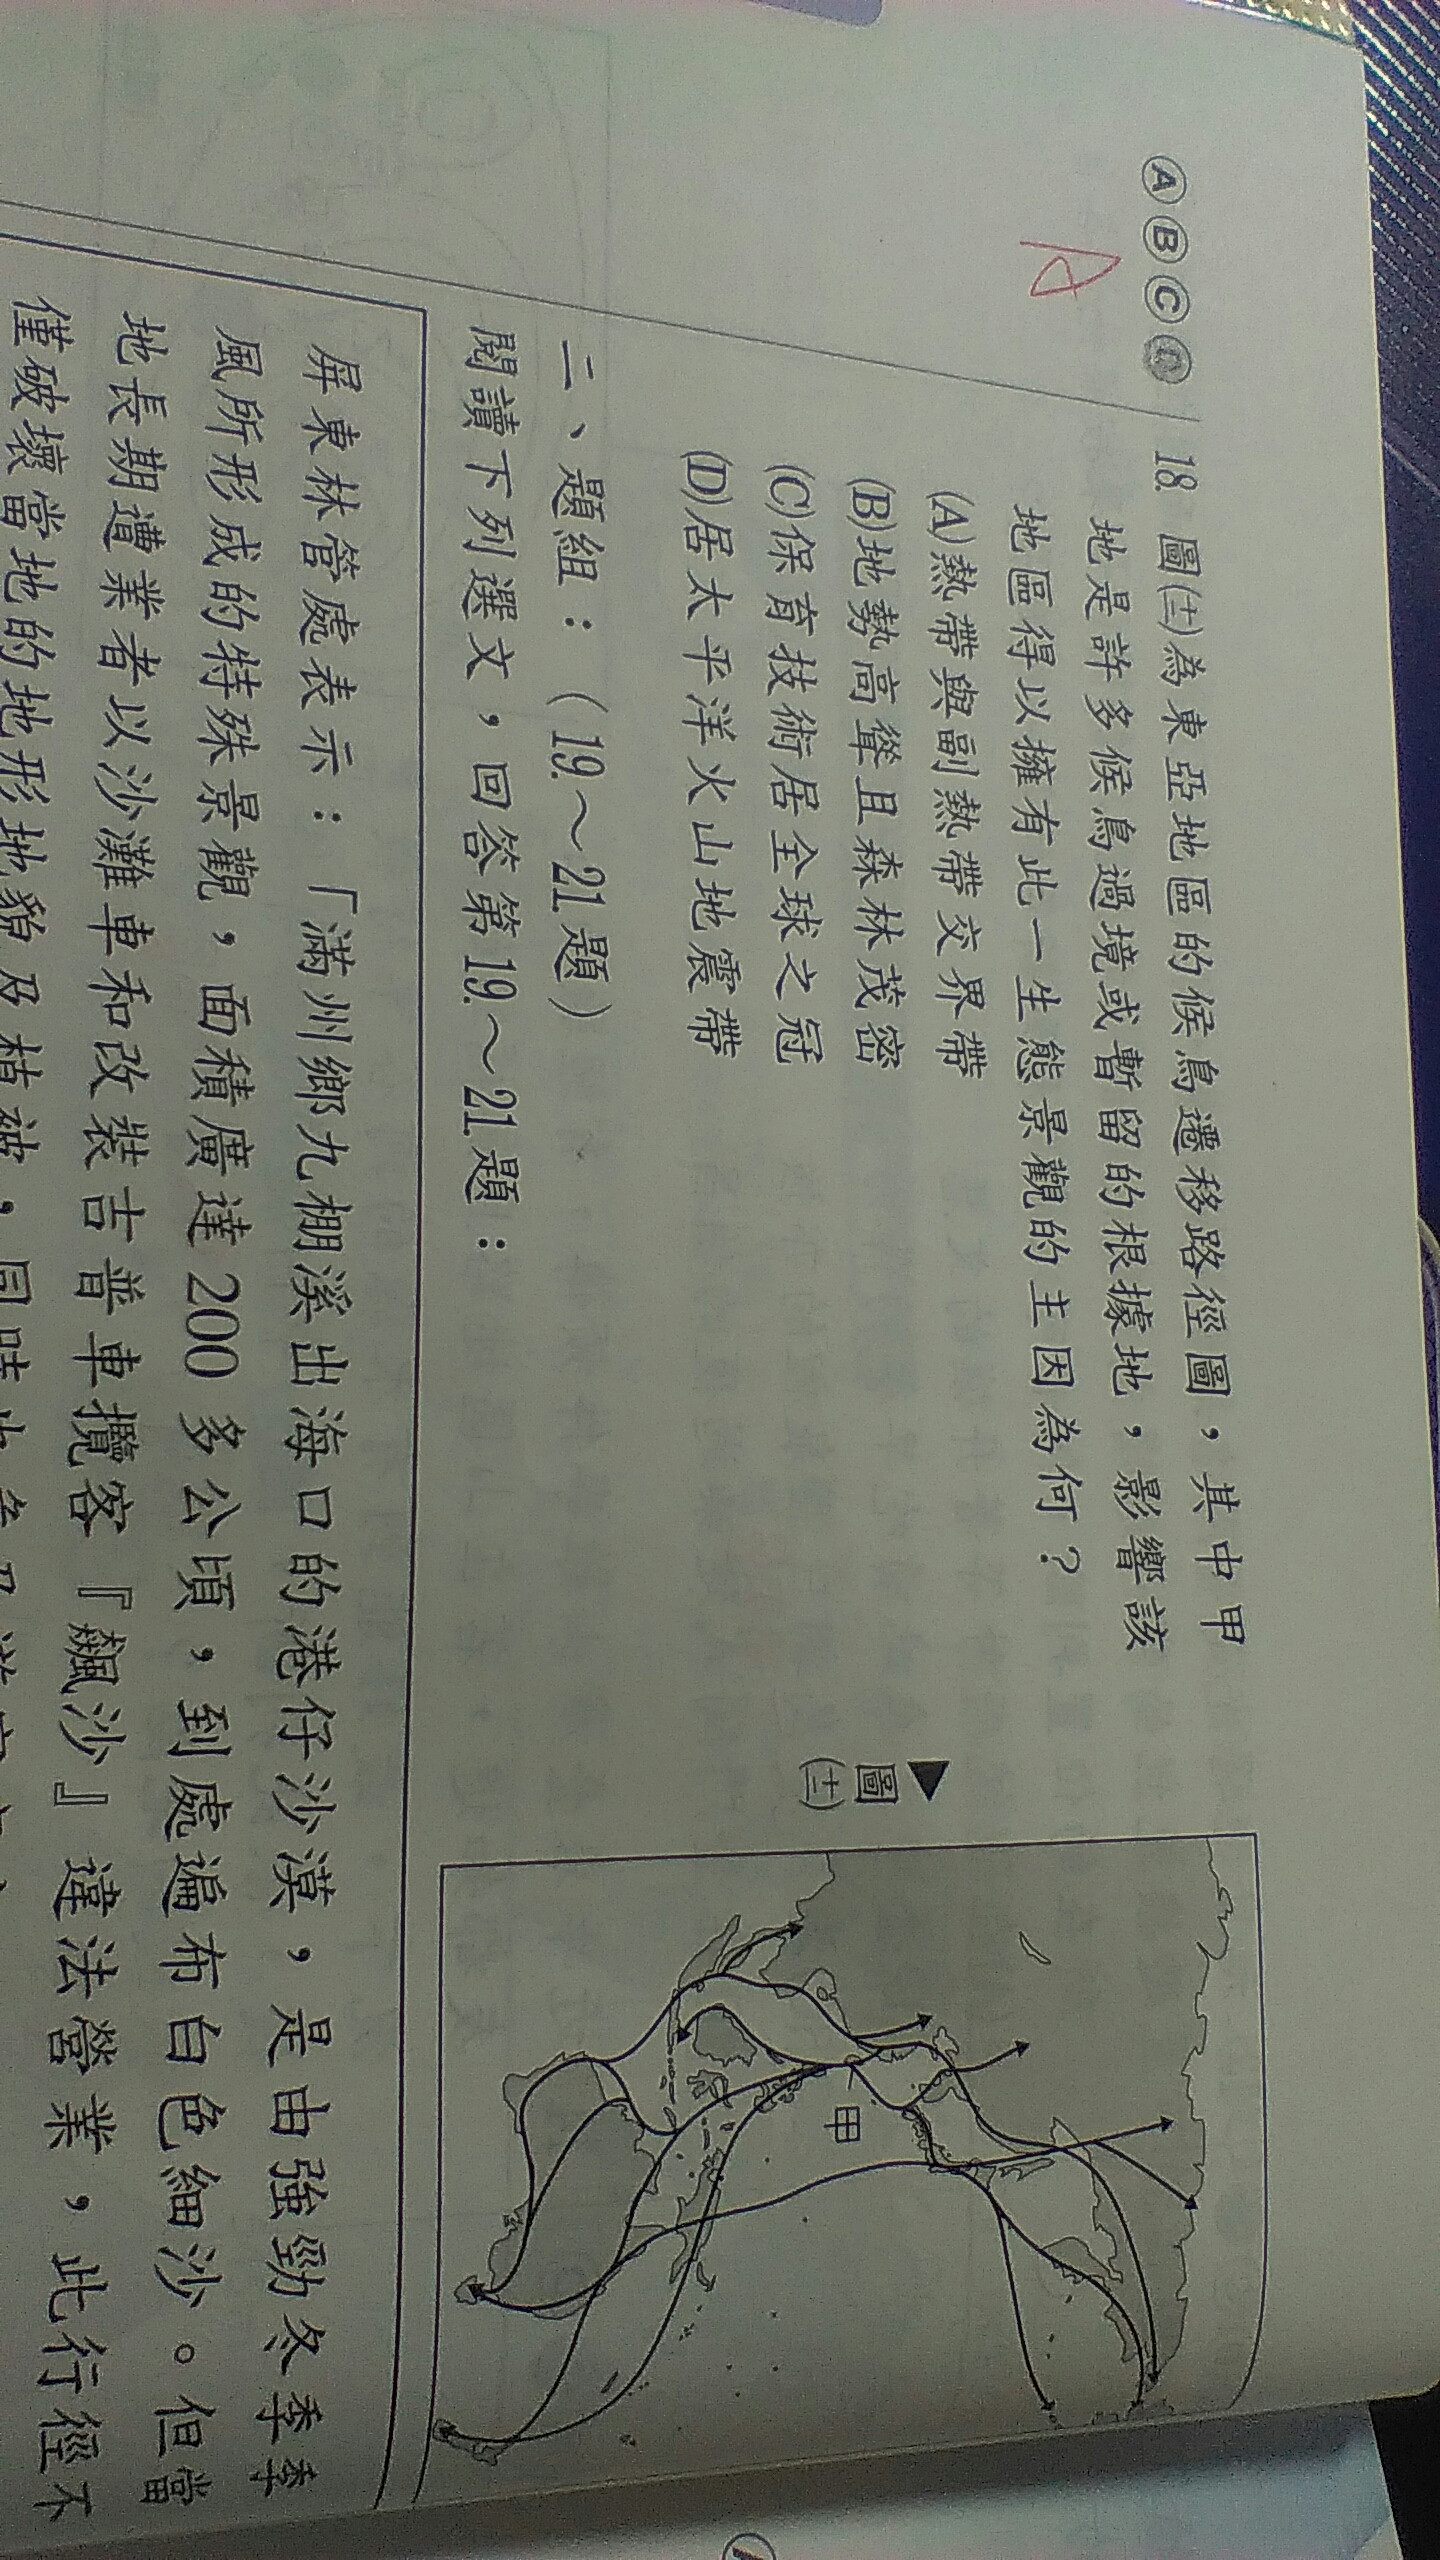 Ⓐ Ⓑ Ⓒ Ⓓ 18. 圖(十二)為東亞地區的候鳥遷移路徑圖，其中甲
地是許多候鳥過境或暫留的根據地，影響該
地區得以擁有此一生態景觀的主因為何？
(A)熱帶與副熱帶交界帶
(B)地勢高聳且森林茂密
(C)保育技術居全球之冠
(D)居太平洋火山地震帶
A
甲
▲圖(十二)
二、題組：（19.～21.題）
閱讀下列選文，回答第19.～21.題：
屏東林管處表示：「滿州鄉九棚溪出海口的港仔沙漠，是由強勁冬季季
風所形成的特殊景觀，面積廣達200 多公頃，到處遍布白色細沙。但當
地長期遭業者以沙灘車和改裝吉普車攬客『飆沙』違法營業，此行徑不
僅破壞當地的地形地貌及植被，同時